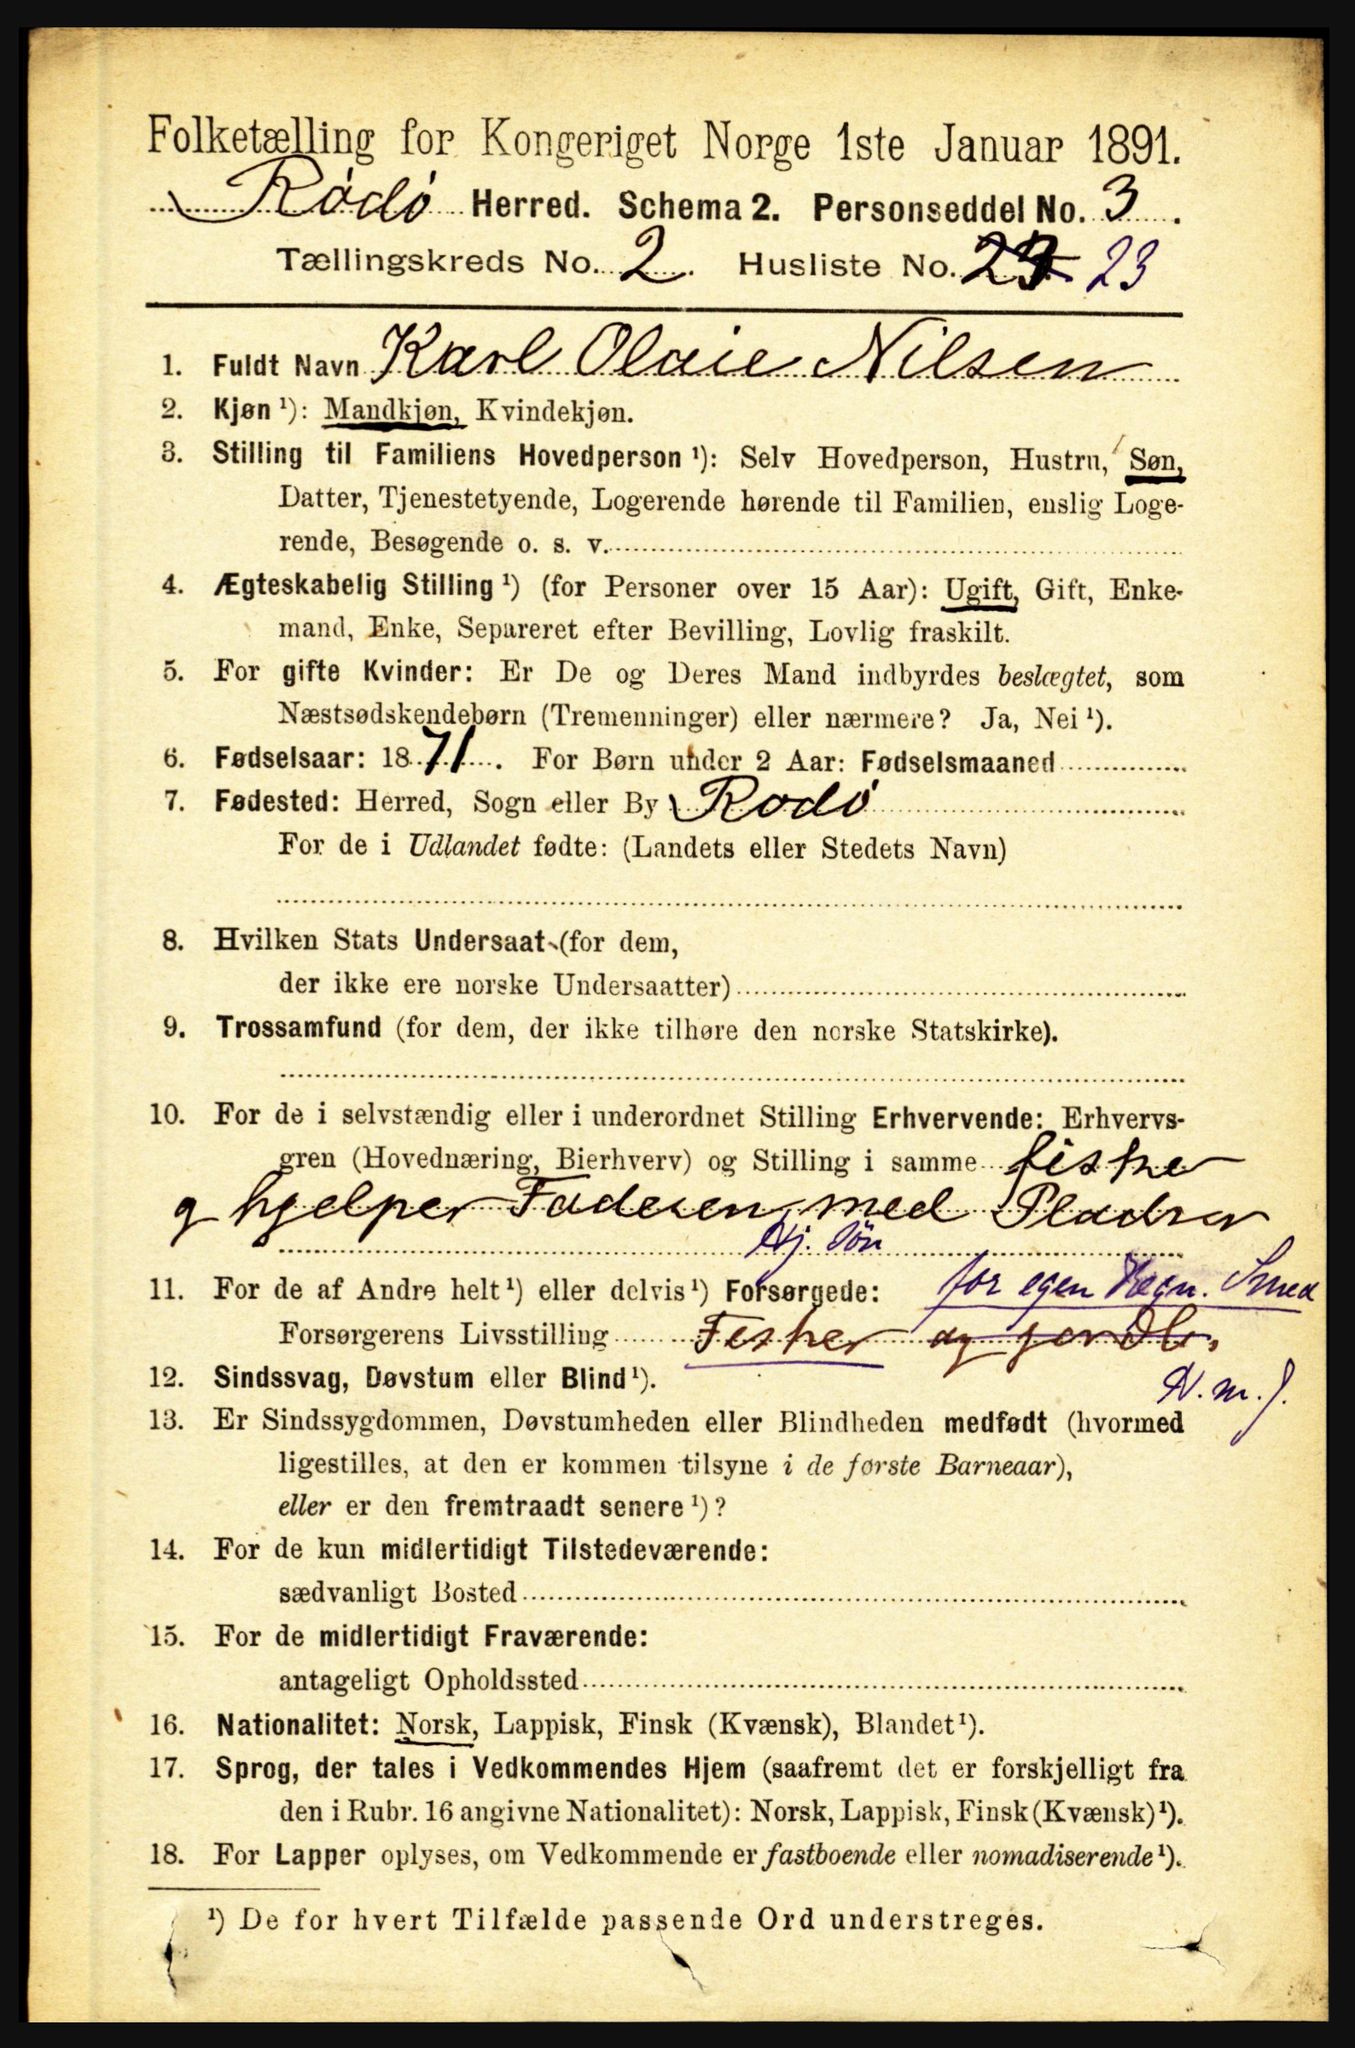 Folketælling for Kongeriget Norge 1ste Januar 1891.
Rødø Herred. Schema 2. Personseddel No. 3.
Tællingskreds No. 2. Husliste No. 23
1. Fuldt Navn Karl Olaie Nilsen
2. Kjøn ¹): Mandkjøn, Kvindekjøn.
3. Stilling til Familiens Hovedperson ¹): Selv Hovedperson, Hustru, Søn,
Datter, Tjenestetyende, Logerende hørende til Familien, enslig Loge-
rende, Besøgende o. s. v.
4. Ægteskabelig Stilling ¹) (for Personer over 15 Aar): Ugift, Gift, Enke-
mand, Enke, Separeret efter Bevilling, Lovlig fraskilt.
5. For gifte Kvinder: Er De og Deres Mand indbyrdes beslægtet, som
Næstsødskendebørn (Tremenninger) eller nærmere? Ja, Nei ¹).
6. Fødselsaar: 1871. For Børn under 2 Aar: Fødselsmaaned
7. Fødested: Herred, Sogn eller By Rodø
For de i Udlandet fødte: (Landets eller Stedets Navn)
8. Hvilken Stats Undersaat (for dem,
der ikke ere norske Undersaatter)
9. Trossamfund (for dem, der ikke tilhøre den norske Statskirke).
10. For de i selvstændig eller i underordnet Stilling Erhvervende: Erhvervs-
gren (Hovednæring, Bierhverv) og Stilling i samme fisker
g hjelper Faderen med Pladsen
Hj. Søn
11. For de af Andre helt ¹) eller delvis ¹) Forsørgede: for egen Regn. Smed
Forsørgerens Livsstilling Fisker og jordb.
12. Sindssvag, Døvstum eller Blind ¹).
N. m. J.
13. Er Sindssygdommen, Døvstumheden eller Blindheden medfødt (hvormed
ligestilles, at den er kommen tilsyne i de første Barneaar),
eller er den fremtraadt senere ¹)?
14. For de kun midlertidigt Tilstedeværende:
sædvanligt Bosted
15. For de midlertidigt Fraværende:
antageligt Opholdssted
16. Nationalitet: Norsk, Lappisk, Finsk (Kvænsk), Blandet ¹).
17. Sprog, der tales i Vedkommendes Hjem (saafremt det er forskjelligt fra
den i Rubr. 16 angivne Nationalitet): Norsk, Lappisk, Finsk (Kvænsk) ¹).
18. For Lapper oplyses, om Vedkommende er fastboende eller nomadiserende ¹).
¹) De for hvert Tilfælde passende Ord understreges.